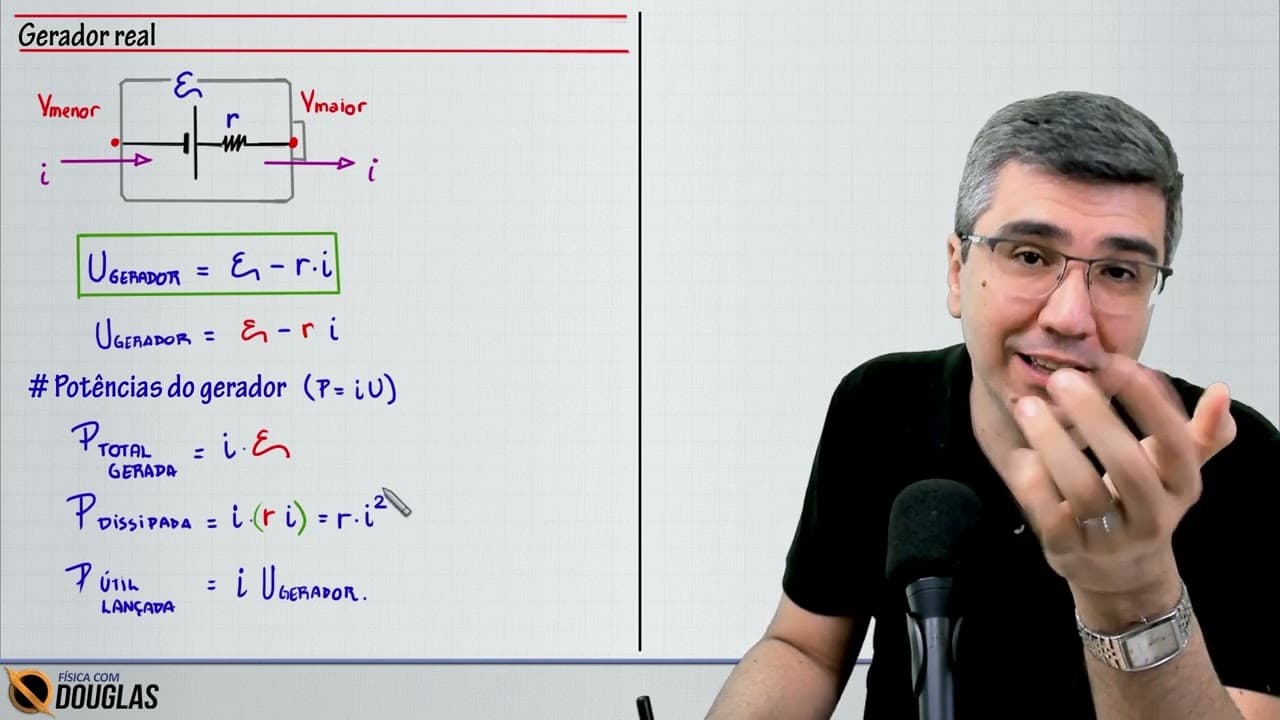 Gerador real
ε
Vmenor
r
Vmaior
i
i
UGERADOR = ε - r·i
UGERADOR = ε - r i
# Potências do gerador (P= iU)
PTOTAL GERADA = i·ε
PDISSIPADA = i·(r i) = r·i²
PÚTIL LANÇADA = i UGERADOR.
FÍSICA COM
DOUGLAS